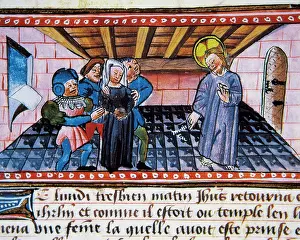 E lundi tresbien matin Jhus retourna e
chrlm et comme il estoit ou temple len l
mena vne feme la quelle auoit este prinse e